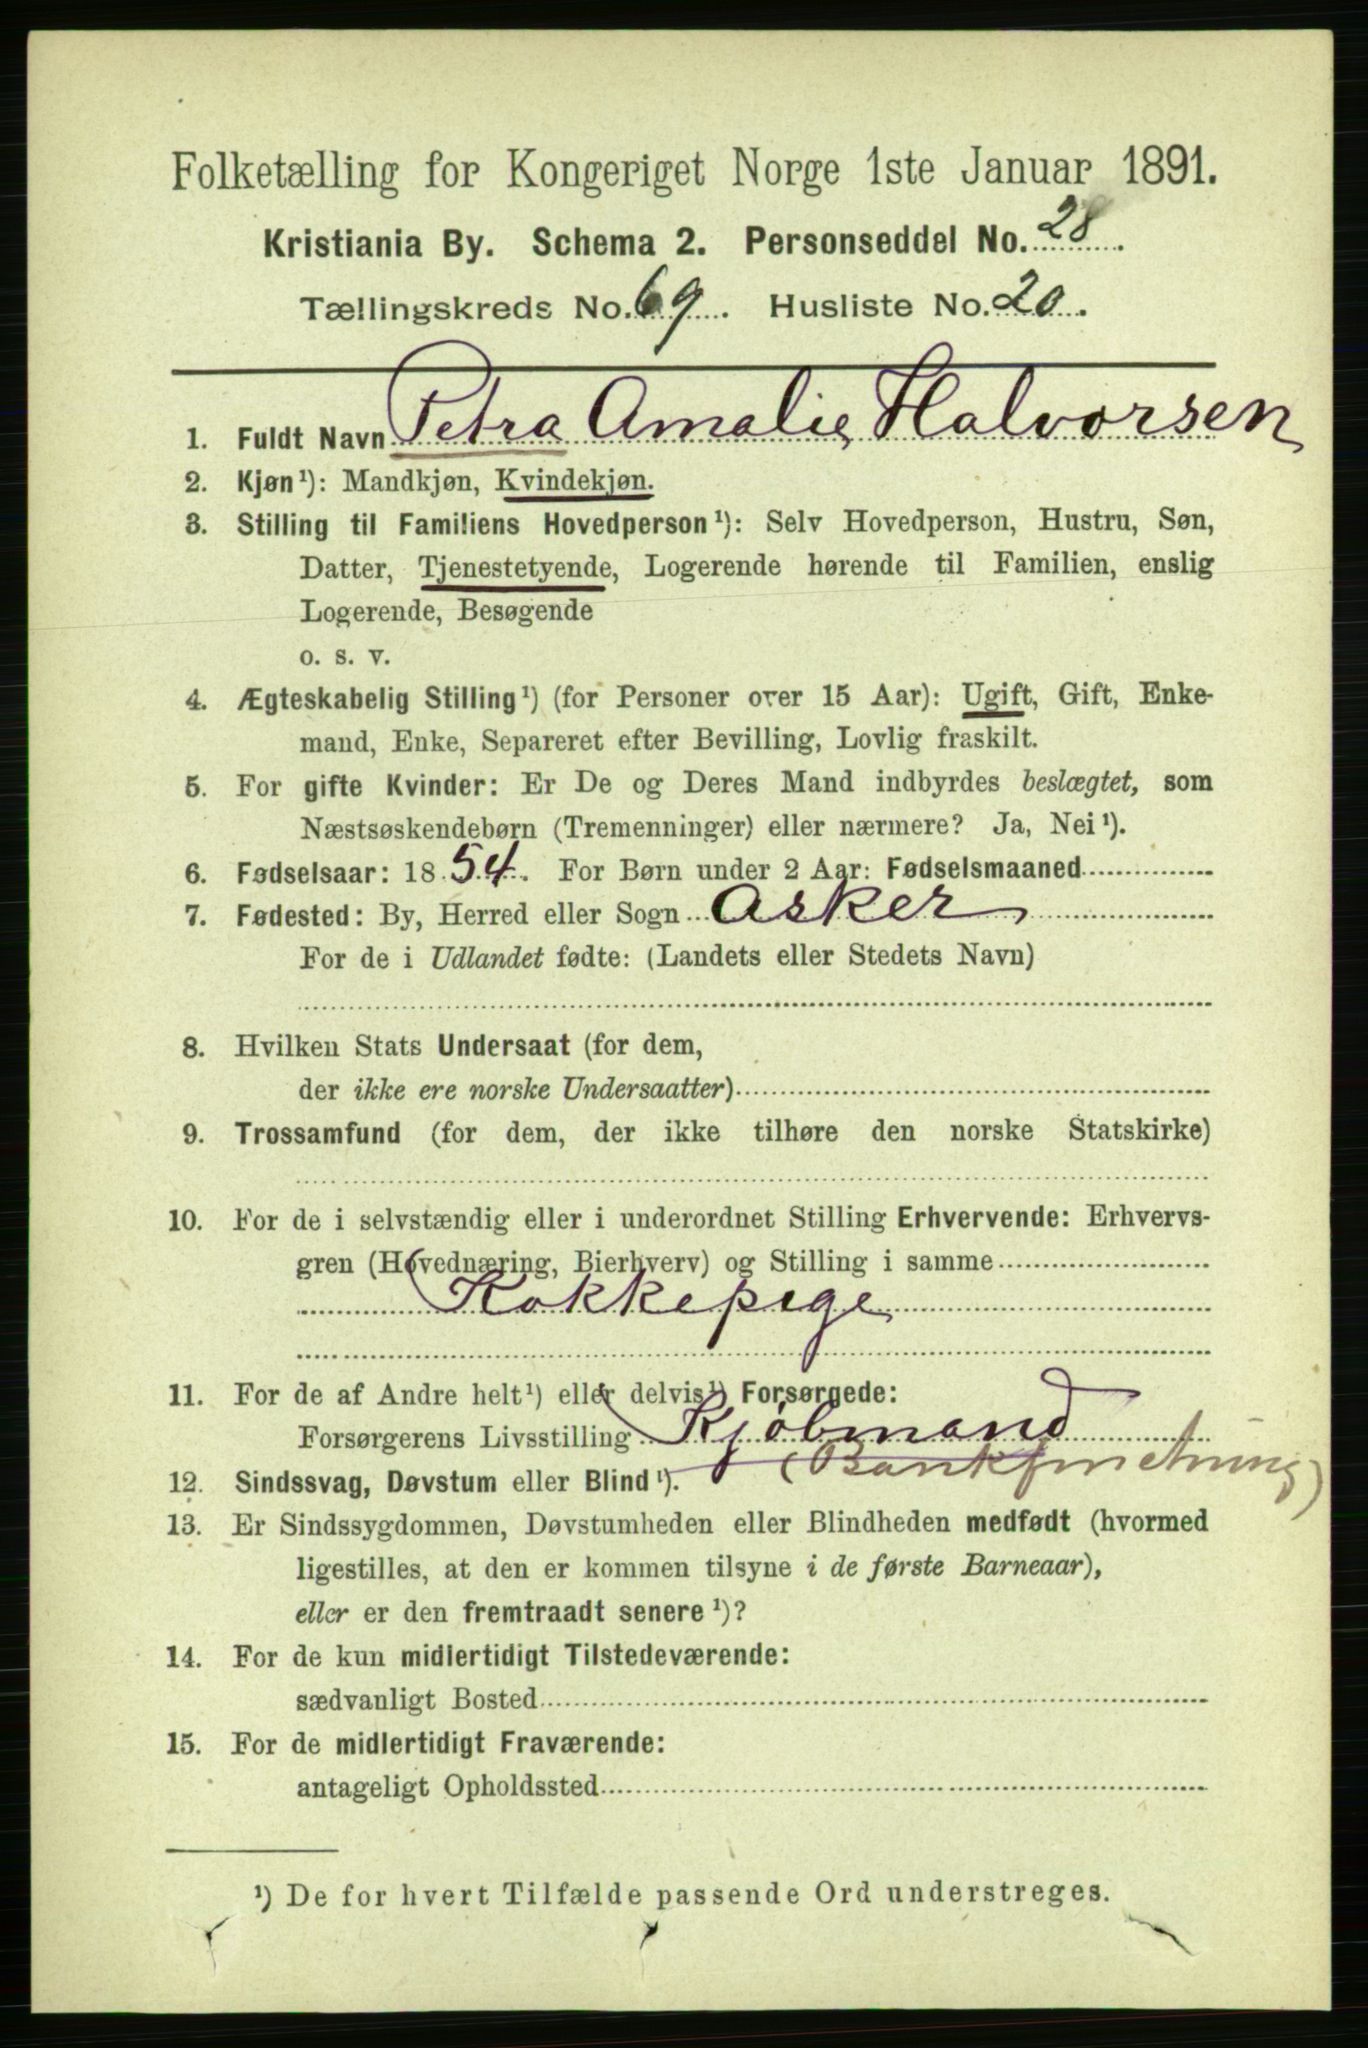 Folketælling for Kongeriget Norge 1ste Januar 1891.
Kristiania By. Schema 2. Personseddel No. 28.
Tællingskreds No. 69. Husliste No. 20.
1. Fuldt Navn Petra Amalie Halvorsen
2. Kjøn¹): Mandkjøn, Kvindekjøn.
3. Stilling til Familiens Hovedperson¹): Selv Hovedperson, Hustru, Søn,
Datter, Tjenestetyende, Logerende hørende til Familien, enslig
Logerende, Besøgende
o. s. v.
4. Ægteskabelig Stilling¹) (for Personer over 15 Aar): Ugift, Gift, Enke-
mand, Enke, Separeret efter Bevilling, Lovlig fraskilt.
5. For gifte Kvinder: Er De og Deres Mand indbyrdes beslægtet, som
Næstsøskendebørn (Tremenninger) eller nærmere? Ja, Nei¹).
6. Fødselsaar: 1854. For Børn under 2 Aar: Fødselsmaaned
7. Fødested: By, Herred eller Sogn Asker
For de i Udlandet fødte: (Landets eller Stedets Navn)
8. Hvilken Stats Undersaat (for dem,
der ikke ere norske Undersaatter)
9. Trossamfund (for dem, der ikke tilhøre den norske Statskirke)
10. For de i selvstændig eller i underordnet Stilling Erhvervende: Erhvervs-
gren (Hovednæring, Bierhverv) og Stilling i samme
Kokkepige
11. For de af Andre helt¹) eller delvis¹) Forsørgede:
Forsørgerens Livsstilling Kjøbmand
12. Sindssvag, Døvstum eller Blind¹).
13. Er Sindssygdommen, Døvstumheden eller Blindheden medfødt (hvormed
ligestilles, at den er kommen tilsyne i de første Barneaar),
eller er den fremtraadt senere¹)?
14. For de kun midlertidigt Tilstedeværende:
sædvanligt Bosted
15. For de midlertidigt Fraværende:
antageligt Opholdssted
¹) De for hvert Tilfælde passende Ord understreges.